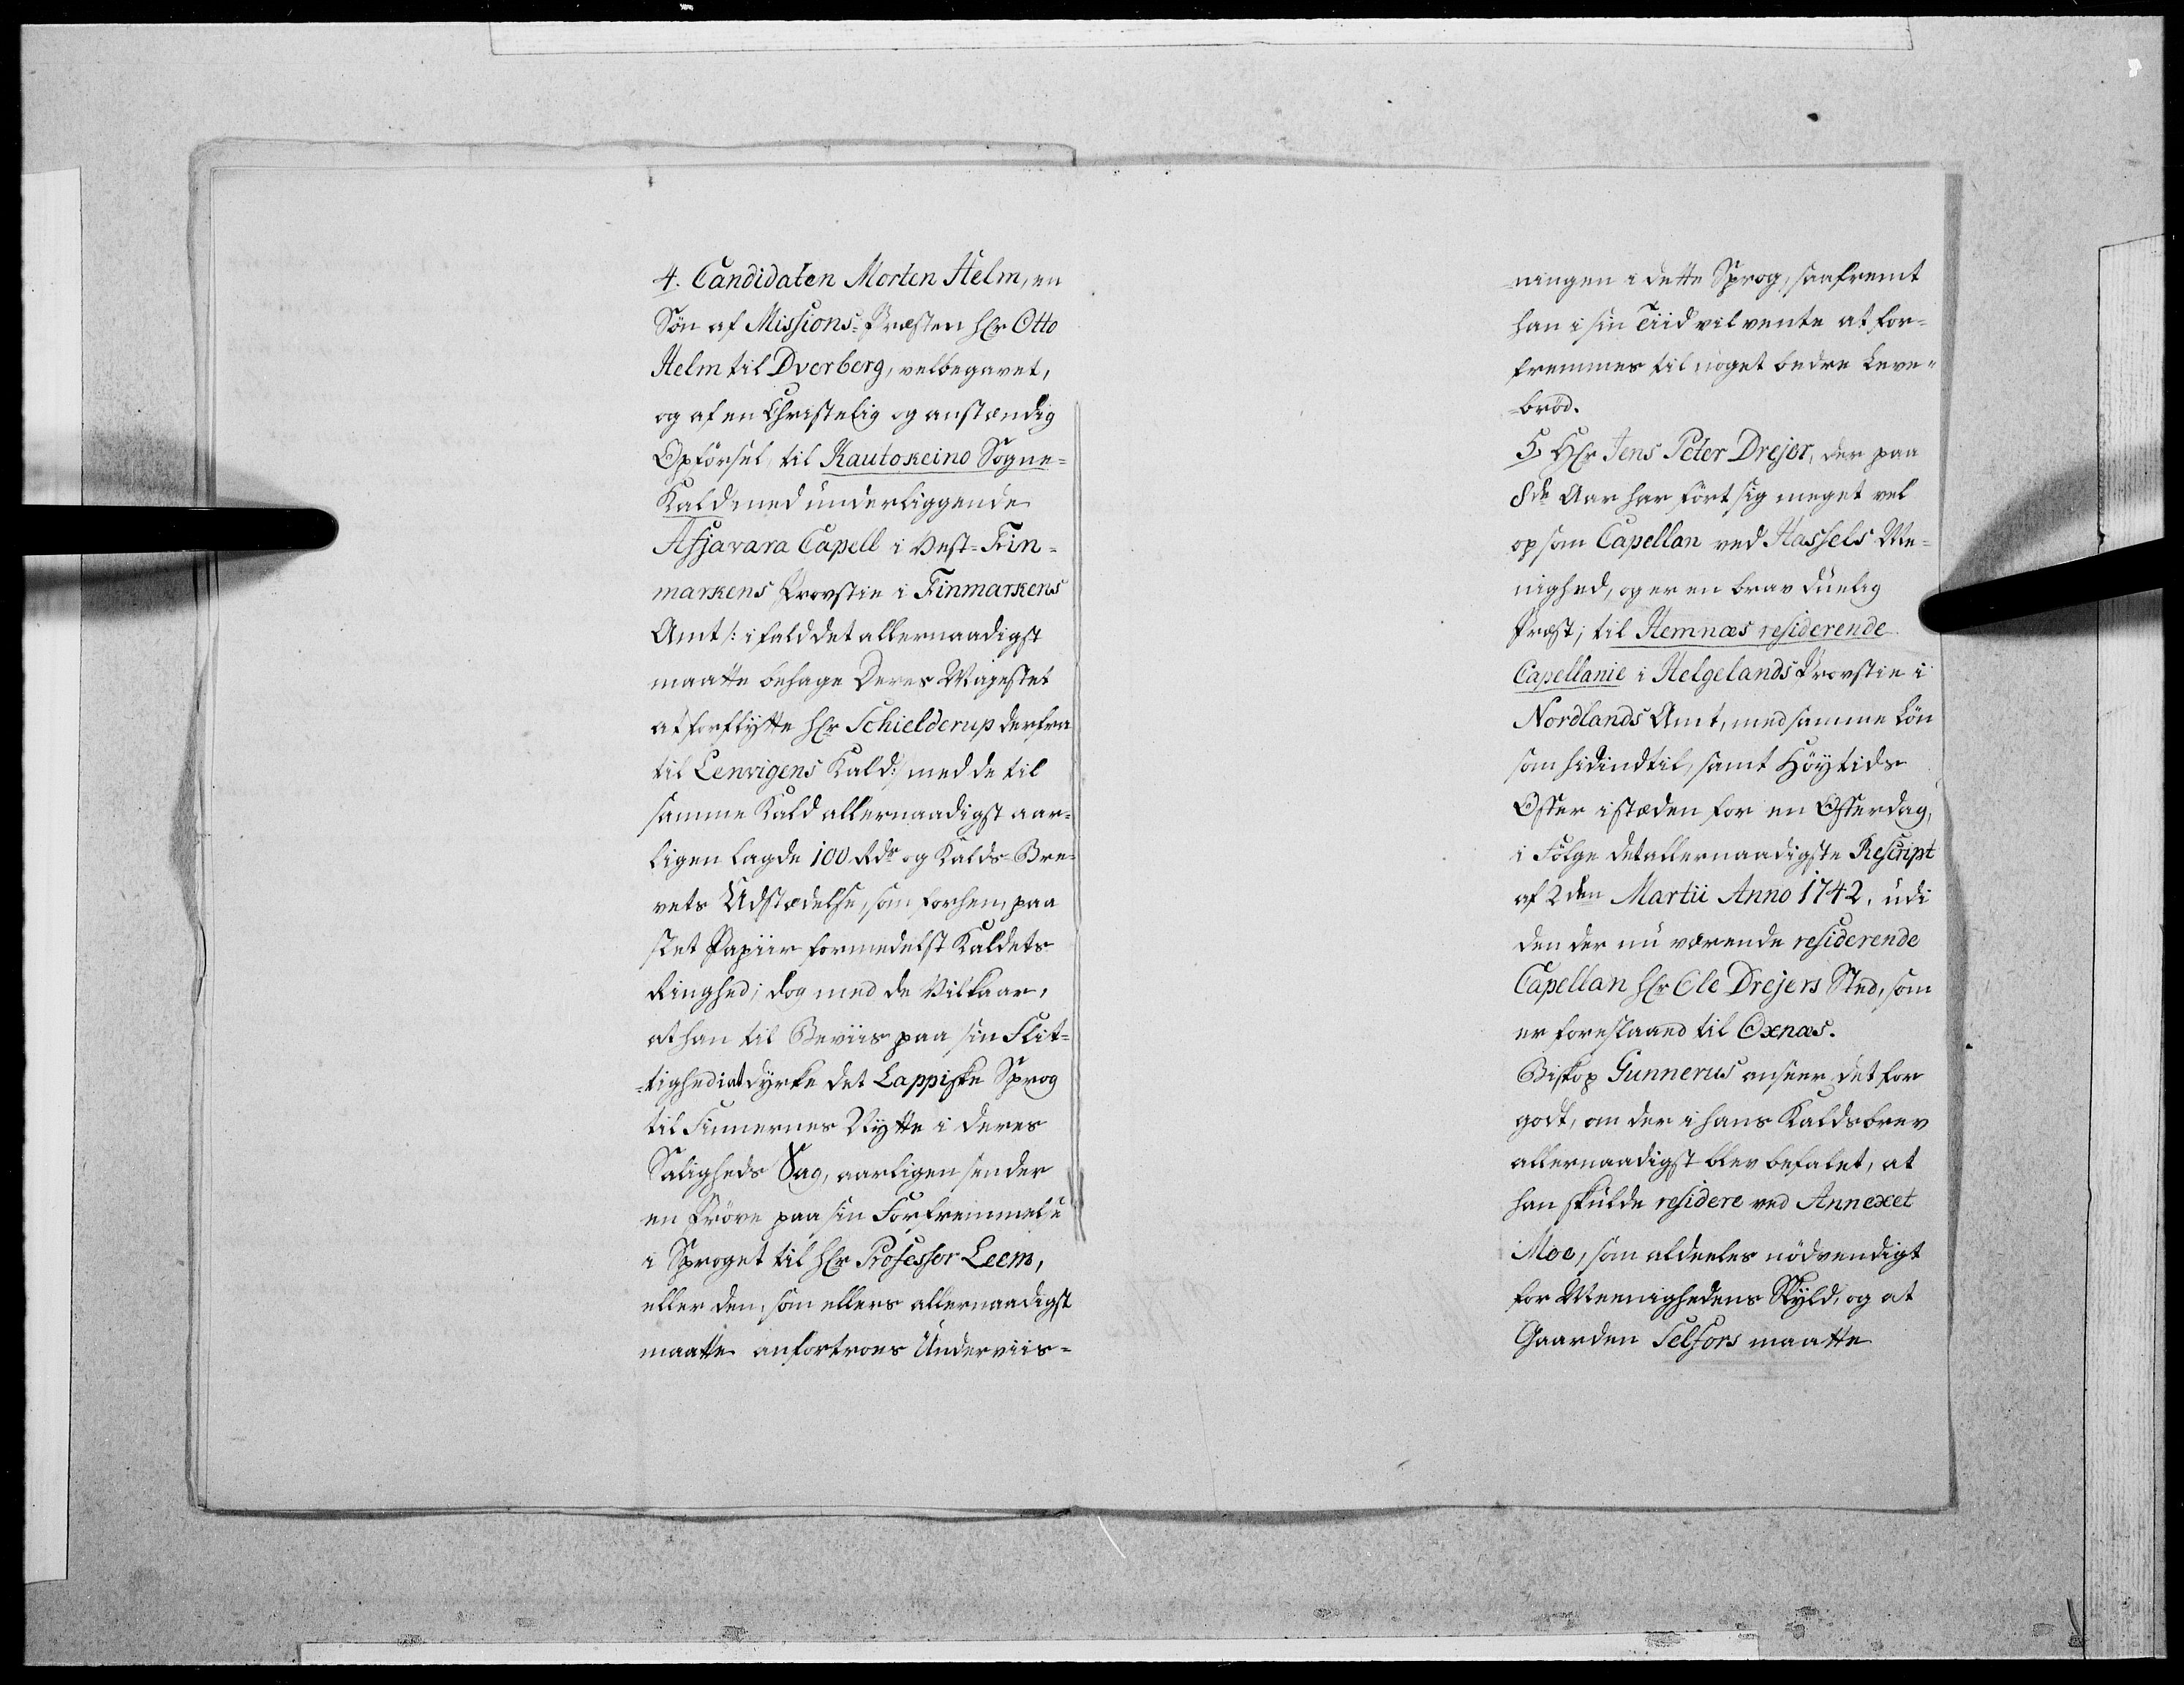 4. Candidaten Morten Helm, en
Søn af Missions-Præsten Hr Otto
Helm til Dverberg, velbegavet,
og af en Christelig og anstændig
Opførsel, til Kautokeino Sogne-
Kald med underliggende
Afjavara Capell i Vest-Fin-
markens Provstie i Finmarkens
Amt /: ifald det allernaadigst
maatte behage Deres Majestet
at forflytte Hr Schielderup derfra
til Lenvigens Kald :/ med de til
samme Kald allernaadigst aar-
ligen lagde 100 Rdr og Kalds-Bre-
vets Udstædelse, som forhen, paa
slet Papiir formedelst Kaldets
Ringhed; dog med de Vilkaar,
at han til Beviis paa sin Flit-
-tighed i at dyrke det Lappiske Sprog
til Finnernes Nytte i deres
Saligheds Sag, aarligen sender
en Prøve paa sin Forfremmelse
i Sproget til Hr Professor Leem,
eller den, som ellers allernaadigst
maatte anfortroes Underviis-
-ningen i dette Sprog, saafremt
han i sin Tiid vil vente at for-
fremmes til noget bedre Leve-
-brød.
5, Hr Jens Peter Drejer, der paa
8de Aar har ført sig meget vel
op som Capellan ved Hassels Me-
nighed, og er en brav duelig
Præst; til Hemnæs residerende
Capellanie i Helgelands Provstie i
Nordlands Amt, med samme Løn
som hidindtil, samt Høytids
Offer istæden for en Offerdag,
i Følge det allernaadigste Rescript
af 2den Martii Anno 1742, udi
den der nu værende residerende
Capellan Hr Ole Drejers Sted, som
er foreslaaed til Oxnæs.
Biskop Gunnerus anseer det for
godt, om der i hans Kaldsbrev
allernaadigst blev befalet, at
han skulde residere ved Annexet
Moe, som aldeeles nødvendigt
for Meenighedens Skyld, og at
Gaarden Selfors maatte